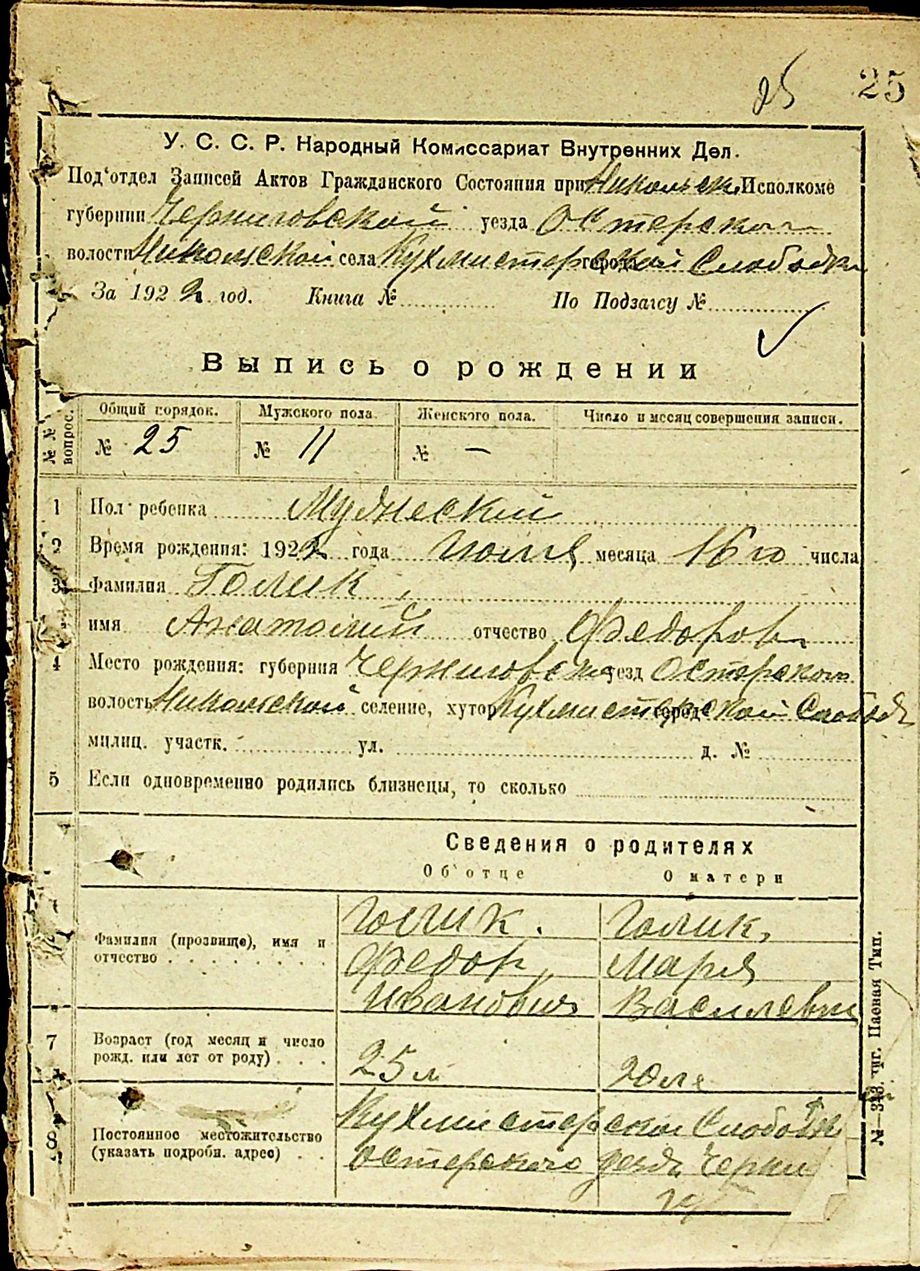 25 25
У. С. С. Р. Народный Комиссариат Внутренних Дел.
Под'отдел Записей Актов Гражданского Состояния при Никольск. Исполкоме
губернии Черниговской уезда Остерского
волости Никольской села Кухмистерской города Слободки
За 1922 год. Книга № По Подзагсу №
Выпись о рождении
№№ вопрос. Общий порядок. Мужского пола. Женского пола. Число и месяц совершения записи.
№ 25 № 11 № —
1 Пол ребенка Мужеский
2 Время рождения: 1922 года июля месяца 16го числа
3 Фамилия Голик,
имя Анатолий отчество Федоров.
4 Место рождения: губерния Черниговск уезд Остерском
волость Никольской селение, хутор Кухмистерской город Слободе
милиц. участк. ул. д. №
5 Если одновременно родились близнецы, то сколько
Сведения о родителях
Об отце О матери
Голик. Голик,
Фамилия (прозвище), имя и
отчество Федор Мария
Иванович Василевн
7 Возраст (год месяц и число
рожд. или лет от роду) 25 л 20 ле
Кухмистерской Слободке
8 Постоянное местожительство
(указать подробн. адрес) Остерского уезда Черни
губ
№—343. Чиг. Паевая Тип.